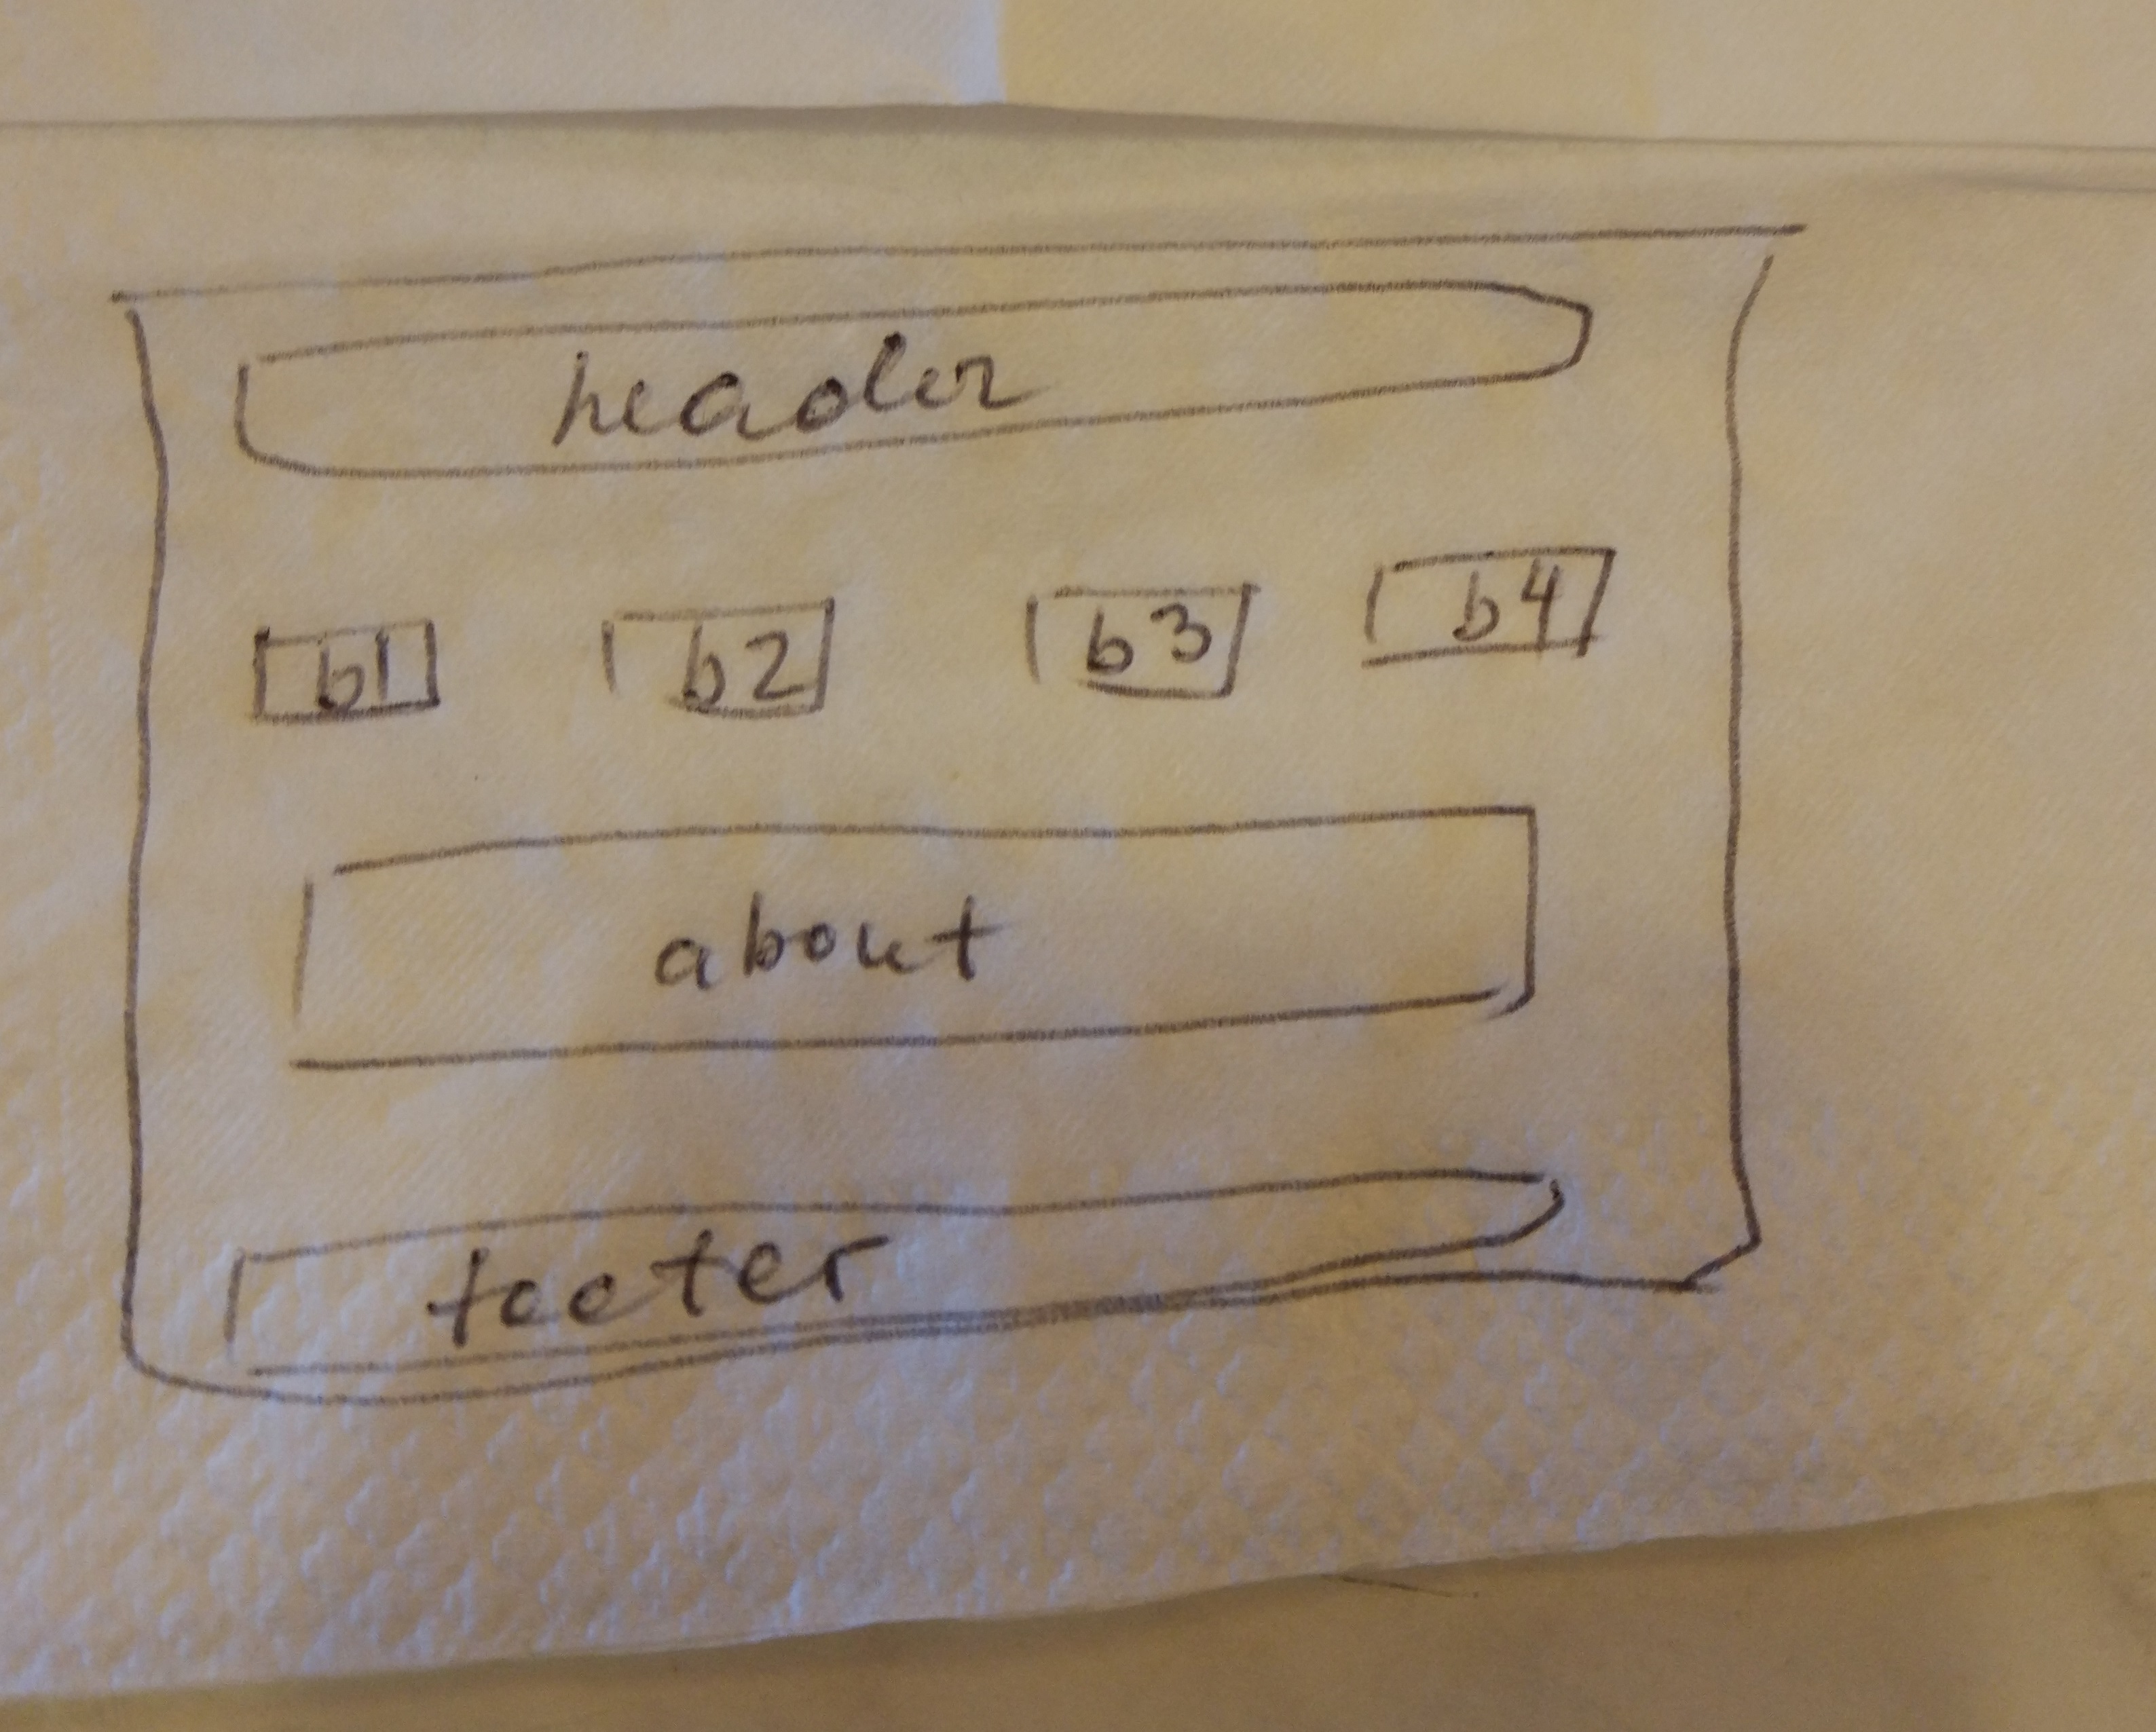 header
b1 b2 b3 b4
about
footer